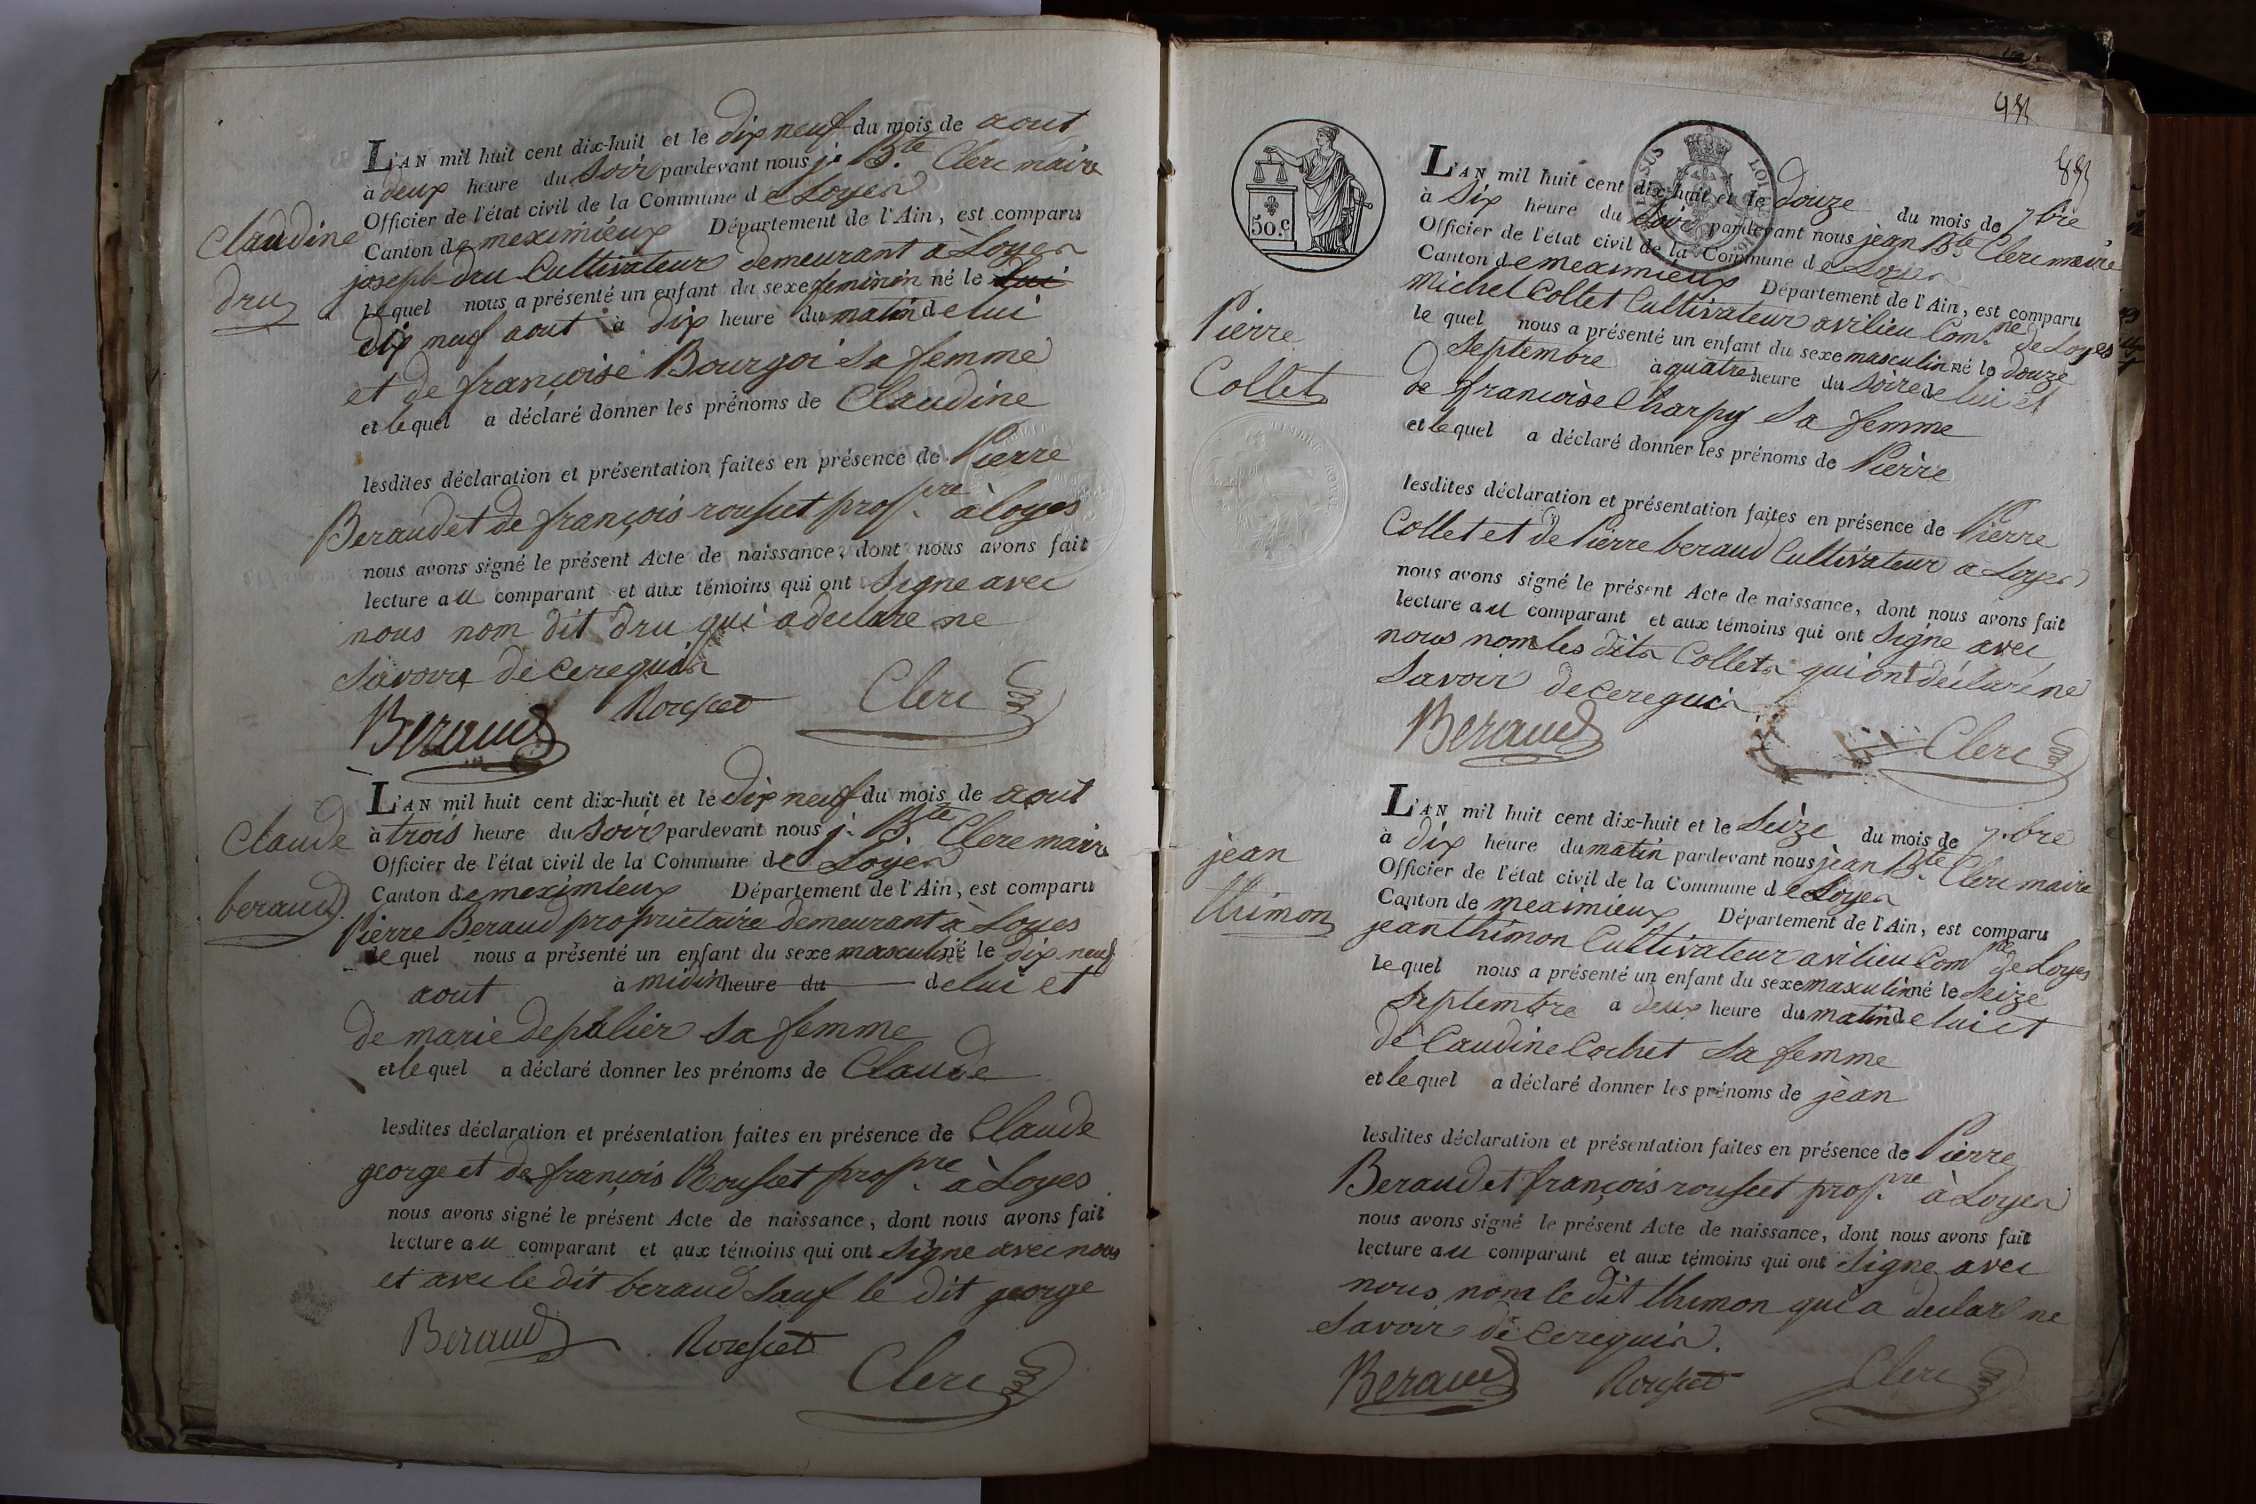 L'AN mil huit cent dix-huit et le dix neuf du mois de aout
à deux heure du soir pardevant nous j. Bte Clerc maire
Officier de l'état civil de la Commune de Loyes
Canton de meximieux Département de l'Ain, est comparu
joseph dru Cultivateur demeurant à Loyes
lequel nous a présenté un enfant du sexe feminin né le lui
dix neuf aout à dix heure du matin de lui
et de françoise Bourgoi sa femme
et lequel a déclaré donner les prénoms de Claudine
lesdites déclaration et présentation faites en présence de Pierre
Beraud et de françois rousset propre à loyes
nous avons signé le présent Acte de naissance, dont nous avons fait
lecture au comparant et aux témoins qui ont signe avec
nous nom dit dru qui a declare ne
savoire de ce requis
Beraud Rousset Clerc
Claudine
dru
L'AN mil huit cent dix-huit et le dix neuf du mois de aout
à trois heure du soir pardevant nous j. Bte Clerc maire
Officier de l'état civil de la Commune de Loyes
Canton de meximieux Département de l'Ain, est comparu
Pierre Beraud propriétaire demeurant à Loyes
le quel nous a présenté un enfant du sexe masculin né le dix neuf
aout à midin heure du de lui et
de marie depalier sa femme
et le quel a déclaré donner les prénoms de Claude
lesdites déclaration et présentation faites en présence de Claude
george et de françois Rousset propre à Loyes
nous avons signé le présent Acte de naissance, dont nous avons fait
lecture au comparant et aux témoins qui ont signe avec nous
et avec le dit beraud sauf le dit george
Beraud Rousset Clerc
Claude
beraud
50.c
L'AN mil huit cent dix-huit et le douze du mois de 7bre
à six heure du soir pardevant nous jean Bte Clerc maire
Officier de l'état civil de la Commune de Loyes
Canton de meximieux Département de l'Ain, est comparu
Michel Collet Cultivateur a vilieu Comne de Loyes
le quel nous a présenté un enfant du sexe masculin né le douze
septembre à quatre heure du soire de lui et
de francoise Charpy sa femme
et lequel a déclaré donner les prénoms de Pierre
lesdites déclaration et présentation faites en présence de Pierre
Collet et de Pierre beraud Cultivateur a Loyes
nous avons signé le présent Acte de naissance, dont nous avons fait
lecture au comparant et aux témoins qui ont signe avec
nous nom les dits Collets qui ont déclaré ne
savoir de ce requis
Beraud Clerc
Pierre
Collet
L'AN mil huit cent dix-huit et le seize du mois de 7.bre
à dix heure du matin pardevant nous jean Bte Clerc maire
Officier de l'état civil de la Commune de Loyes
Canton de meximieux Département de l'Ain, est comparu
jean thimon Cultivateur a vilieu Comne de Loyes
le quel nous a présenté un enfant du sexe masculin né le seize
septembre a deux heure du matin de lui et
de Claudine Cochet sa femme
et le quel a déclaré donner les prénoms de jèan
lesdites déclaration et présentation faites en présence de Pierre
Beraud et françois rousset propre à Loyes
nous avons signé le présent Acte de naissance, dont nous avons fait
lecture au comparant et aux témoins qui ont signe avec
nous nom le dit thimon qui a declare ne
savoir de ce requis.
Beraud Rousset Clerc
jean
thimon